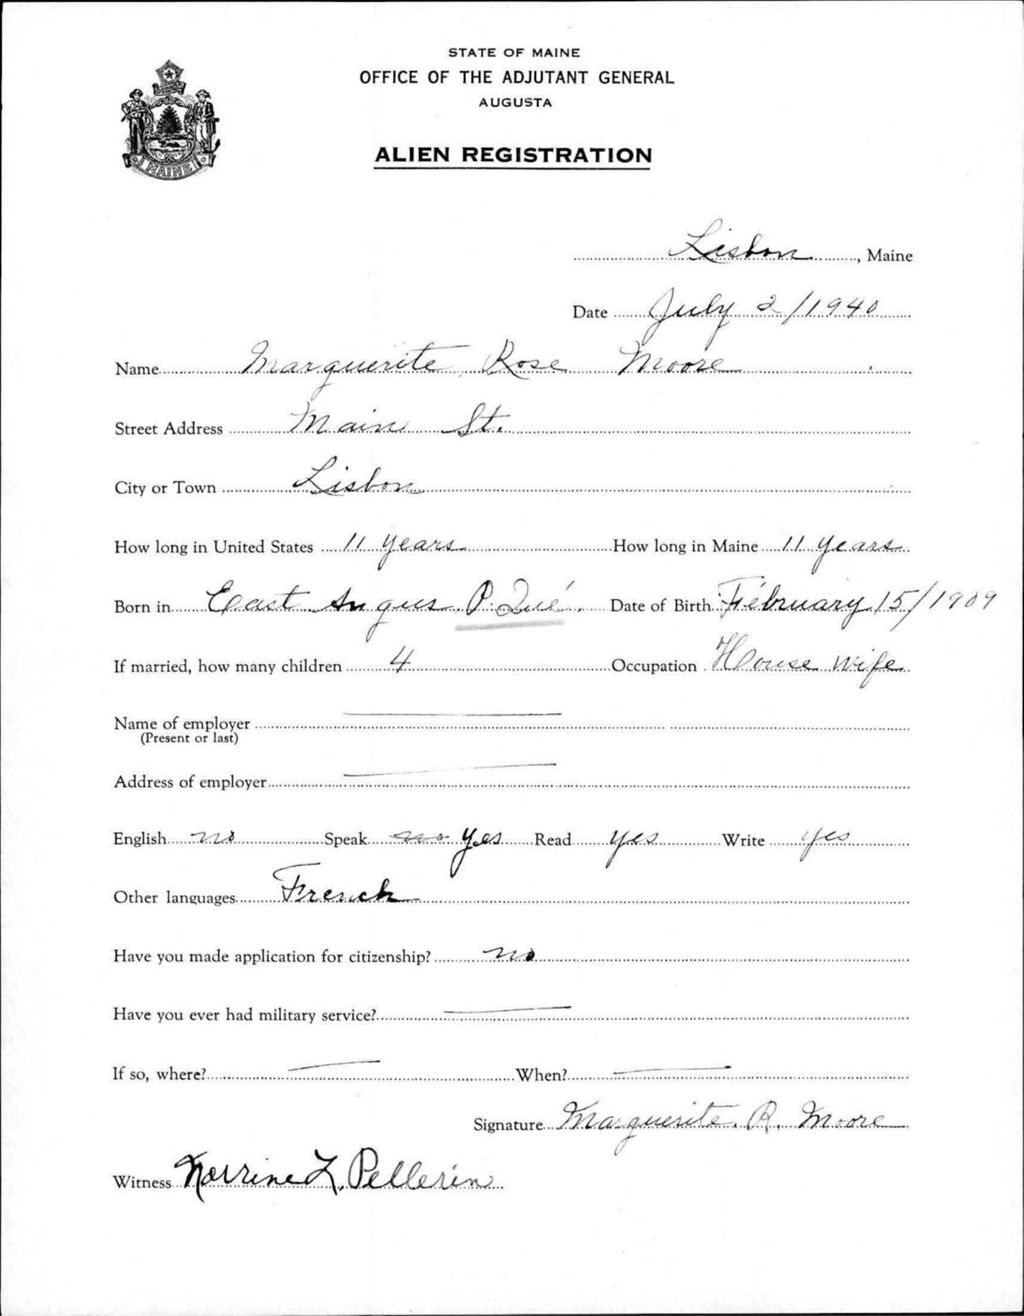 STATE OF MAINE
OFFICE OF THE ADJUTANT GENERAL
AUGUSTA
ALIEN REGISTRATION
MAINE
Lisbon, Maine
Date July 2/1940
Name Marguerite Rose Moore
Street Address Main St.
City or Town Lisbon
How long in United States 11 years How long in Maine 11 years
Born in East Angus P. Qué. Date of Birth February 15/1909
If married, how many children 4 Occupation House wife
Name of employer
(Present or last)
Address of employer
English no Speak no yes Read yes Write yes
Other languages French
Have you made application for citizenship? no
Have you ever had military service?
If so, where? When?
Signature Marguerite R. Moore
Witness Norrine L. Pellerin